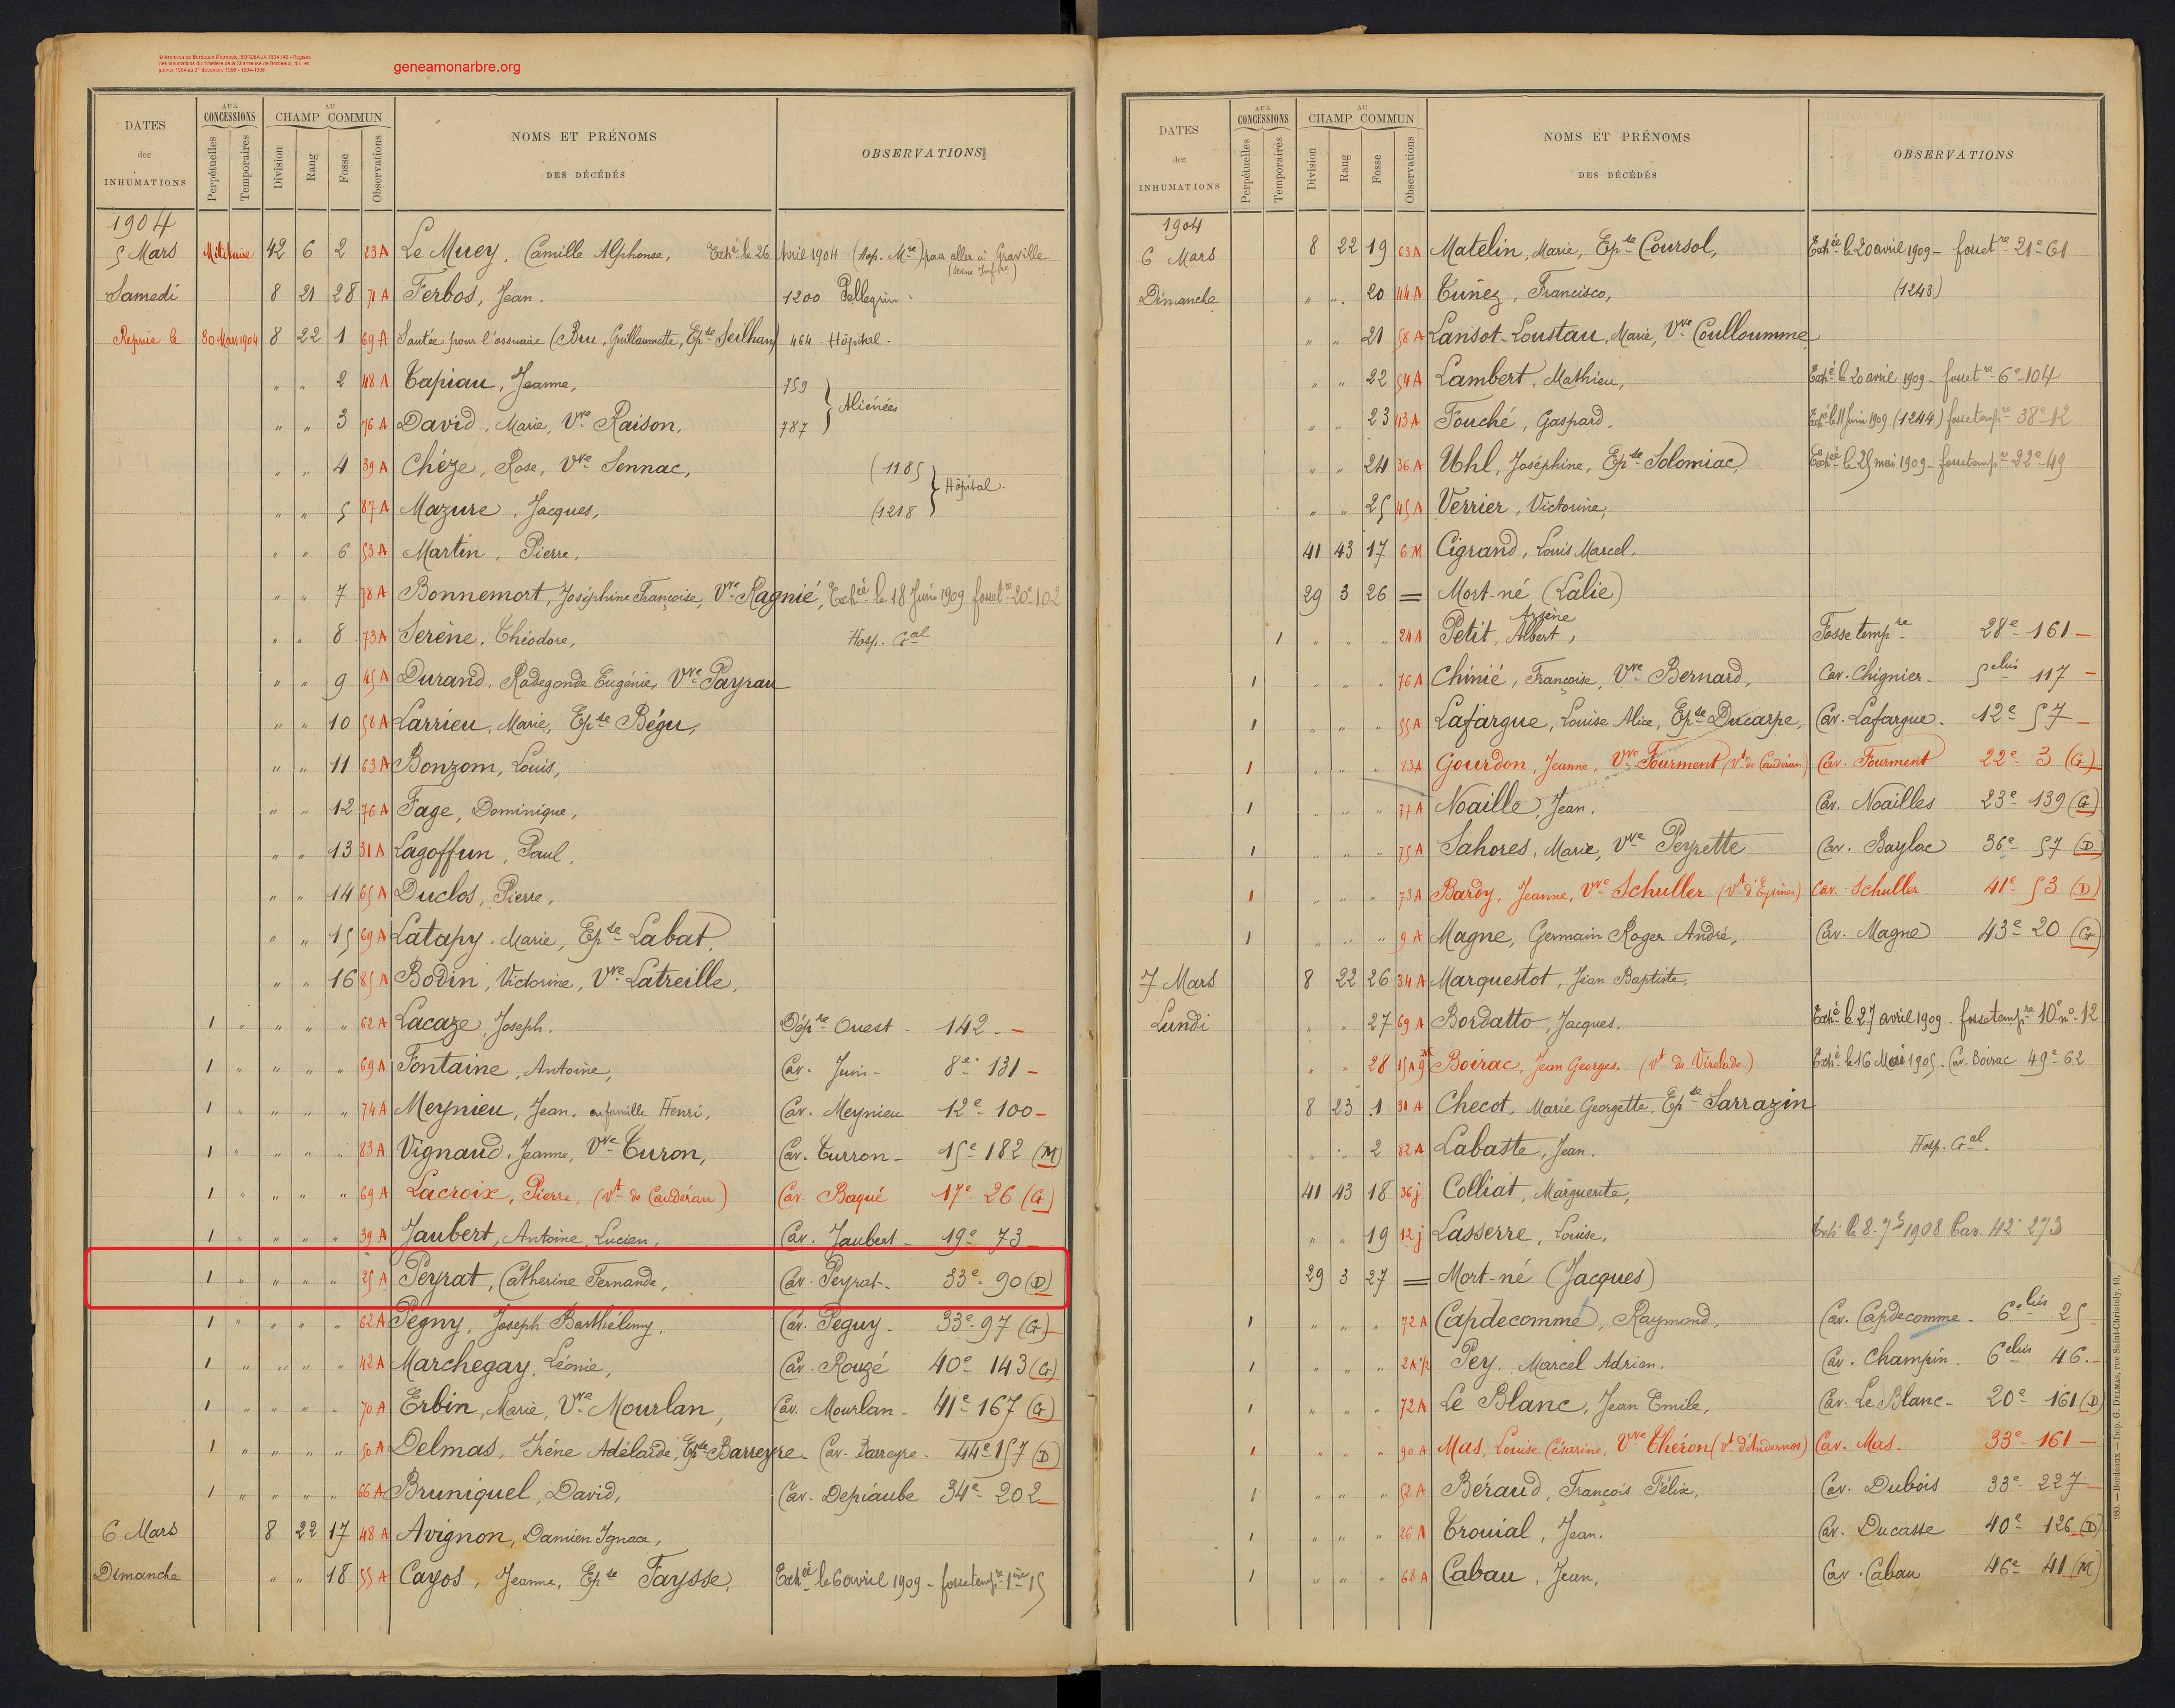 © Archives de Bordeaux Métropole, BORDEAUX 1634 I 48 - Registre
des inhumations du cimetière de la Chartreuse de Bordeaux, du 1er
janvier 1904 au 31 décembre 1906 - 1904-1906
geneamonarbre.org
DATES des INHUMATIONS
AUX CONCESSIONS Perpétuelles Temporaires
AU CHAMP COMMUN Division Rang Fosse Observations
NOMS ET PRÉNOMS DES DÉCÉDÉS
OBSERVATIONS
1904
5 Mars Militaire 42 6 2 23 A Le Muey, Camille Alphonse, Exhé le 26 Avril 1904 (Aop. Mre) pour aller à Graville
(Seine Infre)
Samedi 8 21 28 71 A Ferbos, Jean. 1200 Pellegrin.
Reprise le 30 Mars 1904 8 22 1 69 A Sautée pour l'ossuaire (Bru, Guillaumette, Epse Seilhan) 464. Hôpital.
" " 2 48 A Tapiau, Jeanne, 759
" " 3 76 A David, Marie, Vve Raison, 787 } Aliénées
" " 4 39 A Chéze, Rose, Vve Sennac, (1185
" " 5 87 A Mazure, Jacques, (1218 } Hôpital.
" " 6 53 A Martin, Pierre,
" " 7 78 A Bonnemort, Joséphine Françoise, Vve Ragnié, Exhée le 18 Juin 1909 fosse tre 20e 102
" " 8 73 A Serène, Théodore, Hosp. Gal
" " 9 45 A Durand, Radegonde Eugénie, Vve Payrau
" " 10 58 A Larrieu, Marie, Epse Bégu,
" " 11 63 A Bonzom, Louis,
" " 12 76 A Fage, Dominique,
" " 13 31 A Lagoffun, Paul,
" " 14 65 A Duclos, Pierre,
" " 15 69 A Latapy, Marie, Epse Labat,
" " 16 85 A Bodin, Victorine, Vve Latreille,
1 " " " " 62 A Lacaze, Joseph. Dépre Ouest - 142 - -
1 " " " " 69 A Fontaine, Antoine, Cav. Juin - 8e 131 -
1 " " " " 74 A Meynieu, Jean. en famille Henri, Cav. Meynieu 12e 100 -
1 " " " " 83 A Vignaud, Jeanne, Vve Turon, Cav. Turron - 15e 182 (M)
1 " " " " 69 A Lacroix, Pierre, (vt de Caudéran) Cav. Baqué 17e 26 (G)
1 " " " " 39 A Jaubert, Antoine, Lucien, Cav. Jaubert - 19e 73 -
1 " " " " 25 A Peyrat, Catherine Fernande, Cav. Peyrat - 33e 90 (D)
1 " " " " 62 A Pegny, Joseph Barthélemy, Cav. Peguy - 33e 97 (G)
1 " " " " 42 A Marchegay, Léonie, Cav. Rouzé 40e 143 (G)
1 " " " " 70 A Erbin, Marie, Vve Mourlan, Cav. Mourlan - 41e 167 (G)
1 " " " " 50 A Delmas, Irène Adélaïde, Epse Barreyre - Cav. Barreyre - 44e 157 (D)
1 " " " " 66 A Bruniquel, David, Cav. Depiaube 34e 202 -
6 Mars 8 22 17 48 A Avignon, Damien Ignace,
Dimanche " " 18 55 A Cayos, Jeanne, Epse Faysse, Exhée le 6 avril 1909 - fosse tempre 1ère 15
DATES des INHUMATIONS
AUX CONCESSIONS Perpétuelles Temporaires
AU CHAMP COMMUN Division Rang Fosse Observations
NOMS ET PRÉNOMS DES DÉCÉDÉS
OBSERVATIONS
1904
6 Mars 8 22 19 63 A Matelin, Marie, Epse Coursol, Exhée le 20 avril 1909 - fosse tre 21e 61
Dimanche " " 20 44 A Tuñez, Francisco, (1243)
" " 21 58 A Lansot-Loustau, Marie, Vve Coulloumme,
" " 22 54 A Lambert, Mathieu, Exhé le 20 avril 1909 - fosse tre 6e 104
" " 23 43 A Fouché, Gaspard. Exhé le 11 Juin 1909 (1244) fosse tempre 38e 12
" " 24 36 A Uhl, Joséphine, Epse Solomiac, Exhée le 25 mai 1909 - fosse tempre 22e 49
" " 25 45 A Verrier, Victorine,
41 43 17 6 M Cigrand, Louis Marcel,
29 3 26 = Mort-né (Lalie)
1 " " " 24 A Petit, Albert, Arsène Fosse tempre 28e 161 -
1 " " " 76 A Chinié, Françoise, Vve Bernard, Cav. Chignier - 5e bis 117 -
1 " " " 55 A Lafargue, Louise Alice, Epse Ducarpe, Cav. Lafargue. 12e 57 -
1 " " " 83 A Gourdon, Jeanne, Vve Fourment (vt de Caudéran) Cav. Fourment 22e 3 (G)
1 " " " 77 A Noaille, Jean. Cav. Noailles 23e 139 (G)
1 " " " 75 A Sahores, Marie, Vve Peyrette Cav. Baylac 36e 57 (D)
1 " " " 73 A Bardy, Jeanne, Vve Schuller (vt d'Eysines) Cav. Schuller 41e 53 (D)
1 " " " 9 A Magne, Germain Roger André, Cav. Magne 43e 20 (G)
7 Mars 8 22 26 34 A Marquestot, Jean Baptiste,
Lundi " " 27 69 A Bordatto, Jacques. Exhé le 27 avril 1909 - fosse tempre 10e no 12
" " 28 15 A 9 M Boirac, Jean Georges. (vt de Virelade) Exhé le 16 Mai 1905. Cav. Boirac 49e 62
8 23 1 31 A Checot, Marie Georgette, Epse Sarrazin
" " 2 82 A Labaste, Jean. Hosp. Gal.
41 43 18 36 j Colliat, Marguerite,
" " 19 12 j Lasserre, Louise, Exh. le 8. 7b 1908 Cav. 42e 273
29 3 27 = Mort-né (Jacques)
1 " " " 72 A Capdecomme, Raymond, Cav. Capdecomme - 6e bis 25 -
1 " " " 2 A ½ Pey, Marcel Adrien. Cav. Champin. 6e bis 46. -
1 " " " 72 A Le Blanc, Jean Emile, Cav. Le Blanc - 20e 161 (D)
1 " " " 90 A Mas, Louise Césarine, Vve Théron (vt d'Andernos) Cav. Mas. 33e 161 -
1 " " " 52 A Béraud, François Félix, Cav. Dubois 33e 227 -
1 " " " 26 A Trouial, Jean. Cav. Ducasse 40e 126 (D)
1 " " " 68 A Cabau, Jean, Cav. Cabau 46e 41 (M)
980. — Bordeaux — Imp. G. DELMAS, rue Saint-Christoly, 10.